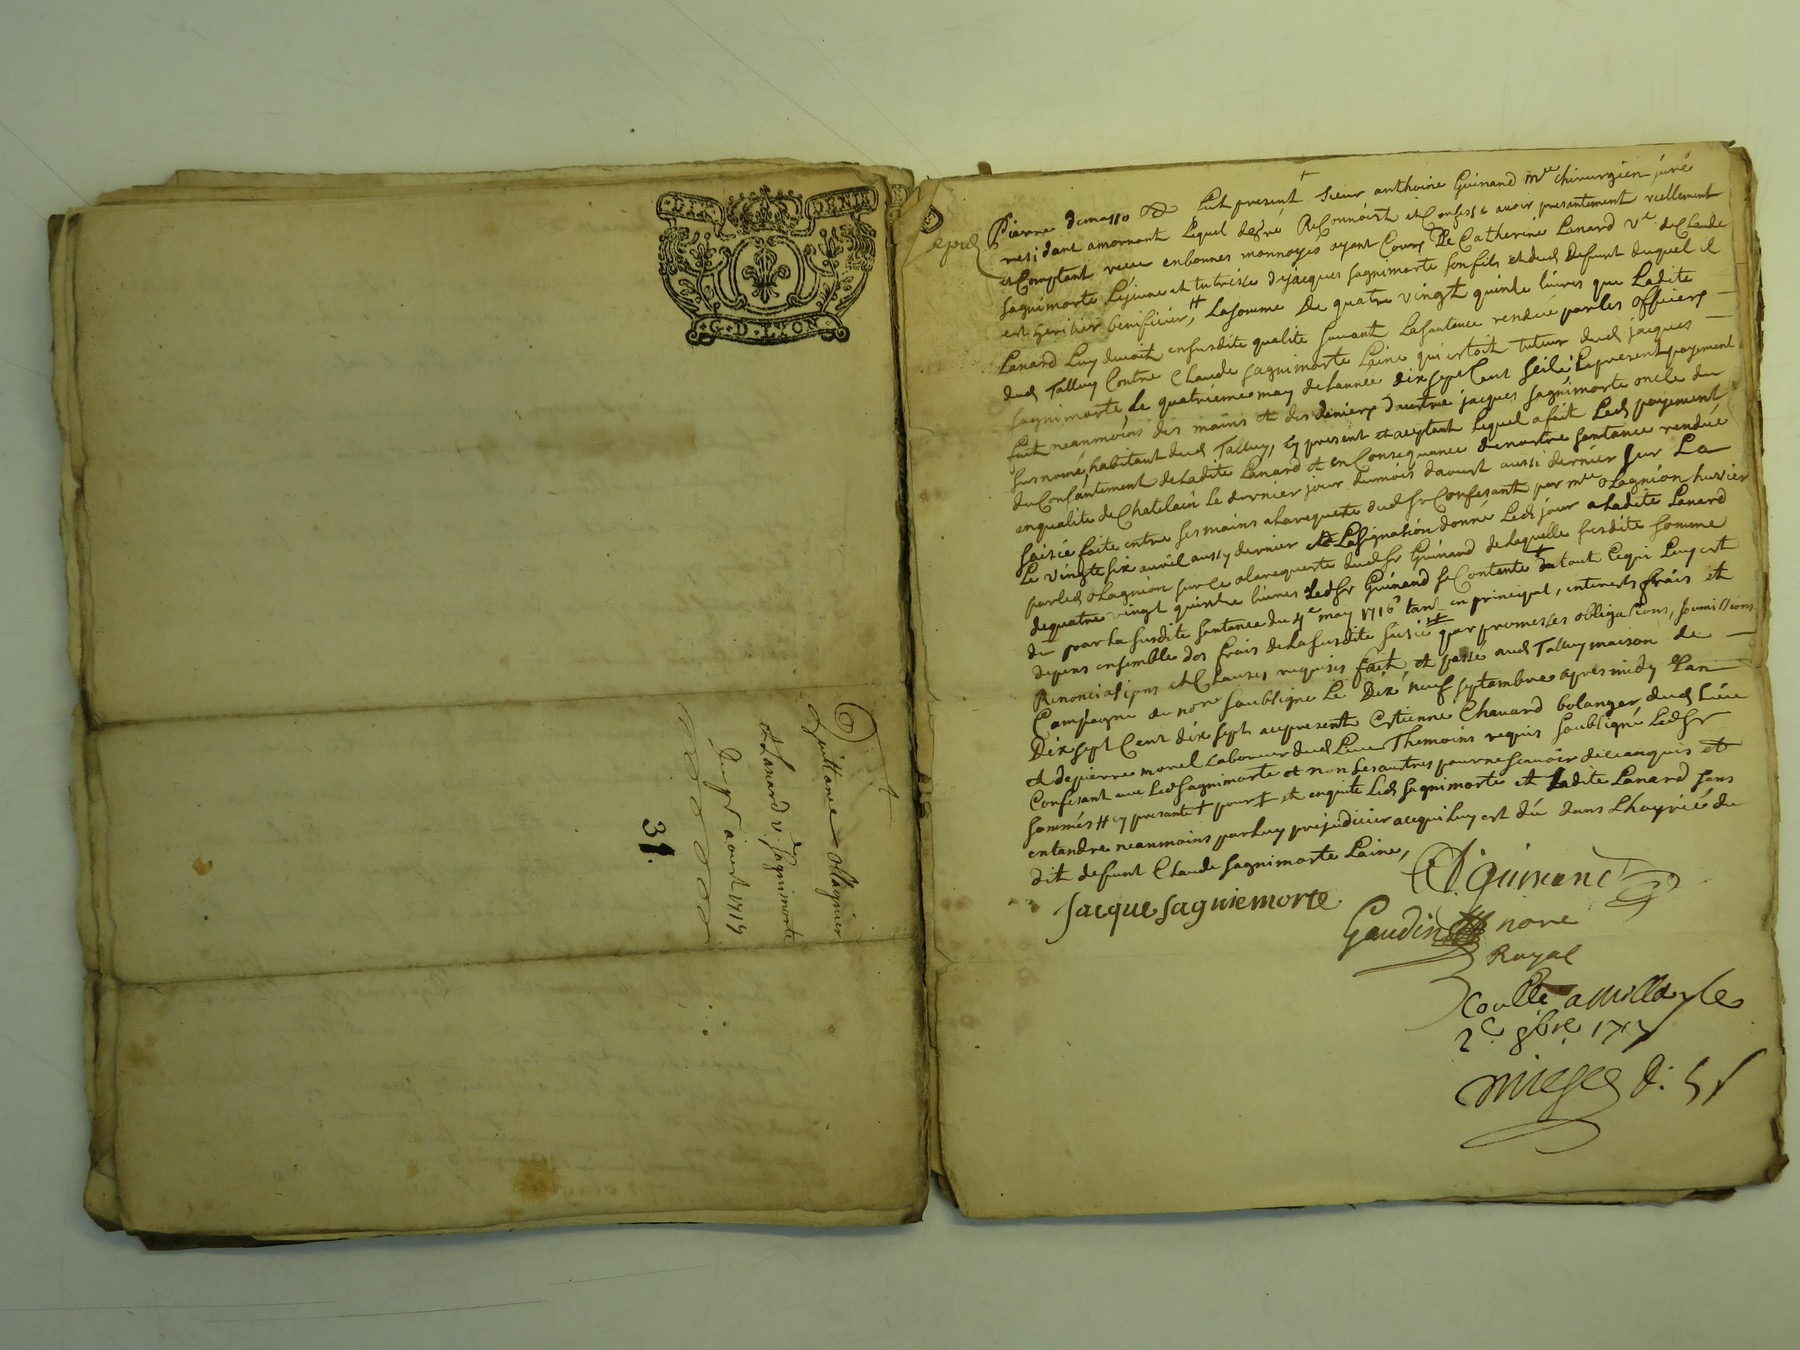 DIX DENIE
G. D. LYON
Quittance Ollagnier
& Lanard v.e Sagnimorte
aoust 1717
31.
Pierre Dernasso fut present sieur anthoine Guinand m.re chirurgien juré
residant amornant Lequel degré Reconnoist et Confesse avoir presentement reellement
et Comptant receu enbonnes monnoyes ayant Cours De Catherine Lanard v.e de Claude
Sagnimorte Lejeune et tutrisse dejacques Sagnimorte Sonfils et dud defunt duquel il
est heritier benificier, # Lasomme De quatre vingt quinse livres que Ladite
Lanard Luy devoit ensusdite qualite suivant La santance rendue par les officiers
dud Talluy Contre Claude Sagnimorte Laine qui estoit tuteur dud jacques
Sagnimorte, Le quatriéme may de Lannée dix sept Cent seise Le present payement
fait neanmoins des mains et des deniers dautre jacques Sagnimorte oncle du
susnomé, habitant dud Talluy, cy present et aceptant Lequel a fait Led payement
du Consantement de Ladite Lanard et en Consequance denostre Santance rendue
enqualite de Chatelain Le dernier jour dumois daoust aussi dernier sur La
saisie faite entre ses mains alarequeste dud Sr Confesant par m.re ollagnion hussier
Le vingt six avril aussy dernier et Lasignation donné Led jour a Ladite Lanard
parled ollagnion sur ce alarequeste dud Sr Guinand delaquelle susdite somme
dequatre vingt quinse livres Led Sr Guinand se Contente et de tout Cequi Luy est
dû par La susdite santance du 4.e may 1716 tant en principal, interests frais et
depens ensemble des frais de La susdite saisie # par promesses obligations, soumissions
Renonciations et Clauses requises fait et passé aud Talluy maison de
Campagne du no.re soubsigné Le Dix neuf septambre apres midy Lan
Dix sept Cent dix sept aux presents Estienne Chavard bolanger dud Lieu
et depierre morel Labourer dud Lieu Themoins requis soubsigné Led Sr
Confesant avec Led Sagnimorte et non les autres pour ne scavoir de ce anquis et
sommés # cy presante + pour + et enquite Led Sagnimorte et Ladite Lanard sans
entandre neanmoins par Luy prejudicier acequi Luy est dû dans Lhoyrie du
dit defunt Claude Sagnimorte Laine,
Jacque Sagniemorte
A Guinand
Gaudin no.re
Royal
Con.lle a Millery Le
2.e 8bre 1717